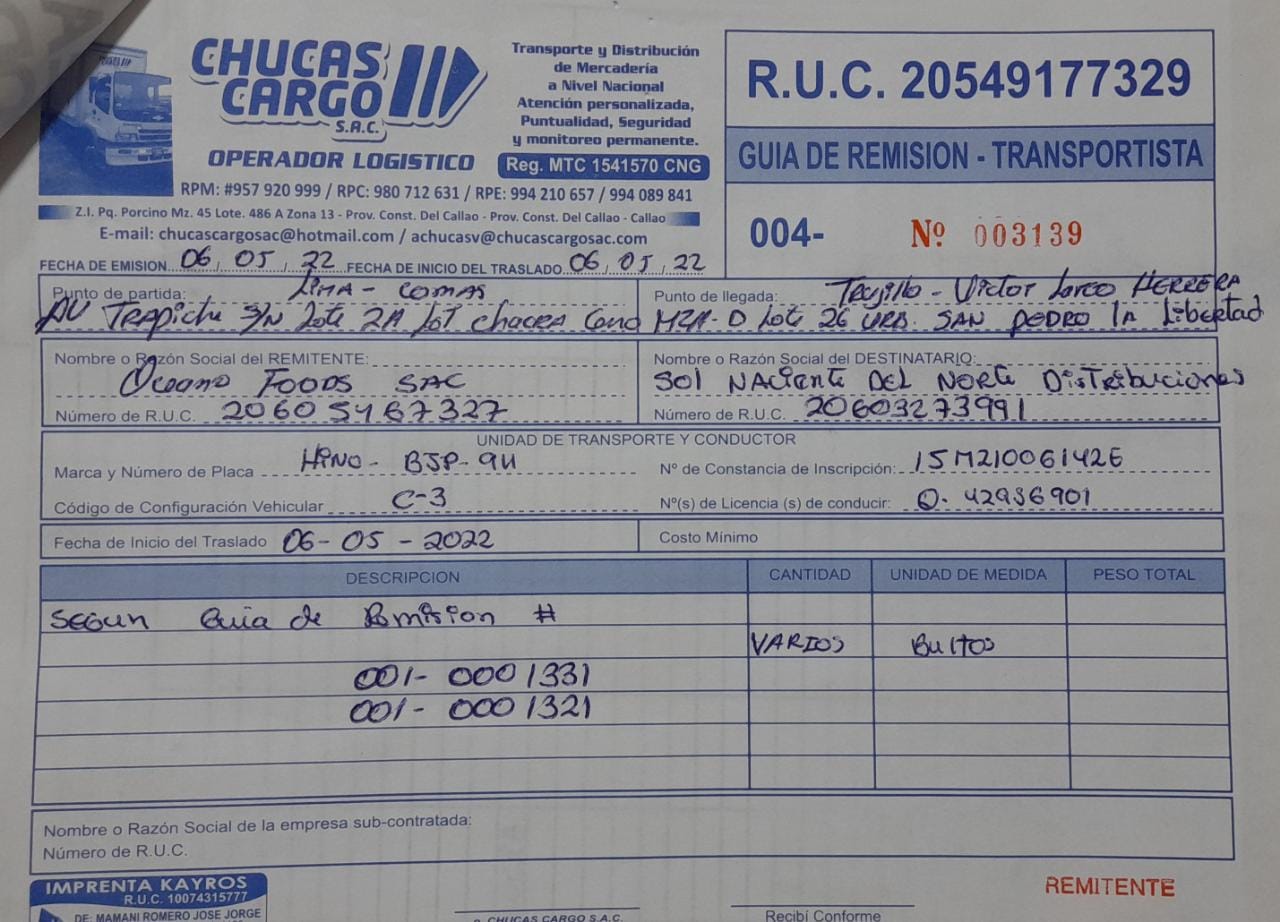 CHUCAS
CARGO
S.A.C.
OPERADOR LOGISTICO
Transporte y Distribución
de Mercadería
a Nivel Nacional
Atención personalizada,
Puntualidad, Seguridad
y monitoreo permanente.
Reg. MTC 1541570 CNG
RPM: #957 920 999 / RPC: 980 712 631 / RPE: 994 210 657 / 994 089 841
Z.I. Pq. Porcino Mz. 45 Lote. 486 A Zona 13 - Prov. Const. Del Callao - Prov. Const. Del Callao - Callao
E-mail: chucascargosac@hotmail.com / achucasv@chucascargosac.com
R.U.C. 20549177329
GUIA DE REMISION - TRANSPORTISTA
004- Nº 003139
FECHA DE EMISION 06, 05, 22 FECHA DE INICIO DEL TRASLADO 06, 05, 22
Punto de partida: LIMA - COMAS
AV TRAPiche S/N Lote 2A Lot chacRA Cond
Punto de llegada: Trujillo - Victor Larco HERRERA
MZA-D Lote 26 URB. SAN PEDRO lA Libertad
Nombre o Razón Social del REMITENTE:
Oceano FOODS SAC
Número de R.U.C. 20605467327
Nombre o Razón Social del DESTINATARIO:
SOl NACiente DEL NORte DistRibuciones
Número de R.U.C. 20603273991
UNIDAD DE TRANSPORTE Y CONDUCTOR
Marca y Número de Placa HINO-
Nº de Constancia de Inscripción: 15M21006142E
Código de Configuración Vehicular C-3
Nº(s) de Licencia (s) de conducir: Q. 42936901
Fecha de Inicio del Traslado 06-05-2022
Costo Mínimo
DESCRIPCION CANTIDAD UNIDAD DE MEDIDA PESO TOTAL
SEGUN Guia de Remision #
VARIOS BultOS
001- 0001331
001- 0001321
Nombre o Razón Social de la empresa sub-contratada:
Número de R.U.C.
IMPRENTA KAYROS
R.U.C. 10074315777
DE: MAMANI ROMERO JOSE JORGE
CHUCAS CARGO S.A.C.
Recibí Conforme
REMITENTE